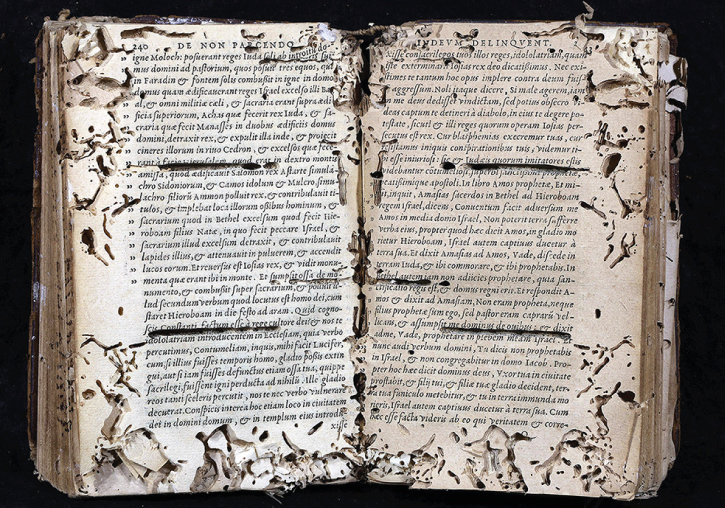 240 DE NON PARCENDO
igne Moloch: posuerant reges Iuda
mus domini ad pastorium, quos posuit tres equos, qui
in Faradin & fontem solis combussit in igne in domo
domus quam ædificauerant reges Israel excelso illi Ba-
al, & omni militiæ cæli, & sacraria erant supra ædi-
ficia superiorum, Achas quæ fecerit rex Iuda, & sa-
craria quæ fecit Manasses in duobus ædificiis domus
domini, detraxit rex, & expulit illa inde, & proiecit
cineres illorum in riuo Cedron, & excelsos quæ fece-
in dextro montis
amissa, quod ædificauit Salomon rex Astarte simula-
chro Sidoniorum, & Camos idolum & Mulcro simu-
lachro filiorū Ammon polluit rex, & contribulauit ti-
tulos, & impleuit loca illorum ossibus hominum, &
sacrarium quod in Bethel excelsum quod fecit Hie-
roboam filius Natæ, in quo fecit peccare Israel, &
sacrarium illud excelsum detraxit, & contribulauit
lapides illius, & attenuauit in puluerem, & accendit
lucos eorum. Et reuersus est Iosias rex, & vidit monu-
menta quæ erant ibi in monte. Et sumpsit ossa de mo-
numento, & combussit super sacrarium, & polluit il-
lud secundum verbum quod locutus est homo dei, cum
staret Hieroboam in die festo ad aram. Quid cogno-
scis Constanti, factum esse à rege cultore dei & nos te
idololatriam introducentem in Ecclesiam, quia verbo
percutimus, Contumeliam, inquis, mihi facit Lucifer,
cum si illius fuisses temporis homo, gladio potuis extin
gui, aut si iam fuisses defunctus etiam ossa tua, quippe
sacrilegi fuissent igni perducta ad nihilū. Ille gladio
reos tanti sceleris percutit, nos te nec verbo vulnerare
decuerat. Conspicis interea hoc etiam loco in ciuitatem
dei in domini domum, & in templum eius introdu-
xisse
INDEVM DELINQVENT. 2
xisse consacrilegos tuos illos reges, idololatriam, quam
isse exterminatam Iosias rex deo dicatissimus. Nec exi-
stimes te tantum hoc opus implere contra deum fuis-
aggressum. Noli itaque dicere, Si male egerem, iam
in me deus dedisset vindictam, sed potius obsecro
deas captum te detineri à diabolo, in eius te degere po-
testate, sicut & illi reges quorum operam Iosias per-
secutus est rex. Cur blasphemias execremur tuas, cur
resistamus iniquis conspirationibus tuis, videmur ti-
bi esse iniuriosi: sic & Iudæis quorum imitatores estis
videbantur cotumeliosi
catissimique apostoli. In libro Amos prophetæ, Et mi-
sit, inquit, Amasias sacerdos in Bethel ad Hieroboam
regem Israel, dicens, Conuentum facit aduersum me
Amos in media domo Israel, Non poterit terra sufferre
verba eius, propter quod hæc dicit Amos, in gladio mo
rietur Hieroboam, Israel autem captiuus ducetur à
terra sua. Et dixit Amasias ad Amos, Vade, discede in
terram Iuda, & ibi commorare, & ibi prophetabis. In
Bethel autem iam non adiicies prophetare, quia san-
ctificatio regis est, & domus regni erit. Et respondit A-
mos & dixit ad Amasiam, Non eram propheta, neque
filius prophetæ sum ego, sed pastor eram caprarū vel-
licans, & assumpsit me dominus de ouibus, & dixit
ad me, Vade, prophetare in plebem meam Israel. Et
nunc audi verbum domini, Tu dicis non prophetabis
in Israel, & non congregabitur in domo Iacob. Pro-
pter hoc hæc dicit dominus deus, Vxor tua in ciuitate
prostabit, & filij tui, & filiæ tuæ gladio decident, ter-
ra tua funiculo metebitur, & tu in terra immunda mo
rieris, Israel autem captiuus ducetur à terra sua. Cum
hæc esse facta videris ab eo qui veritatem & corre-